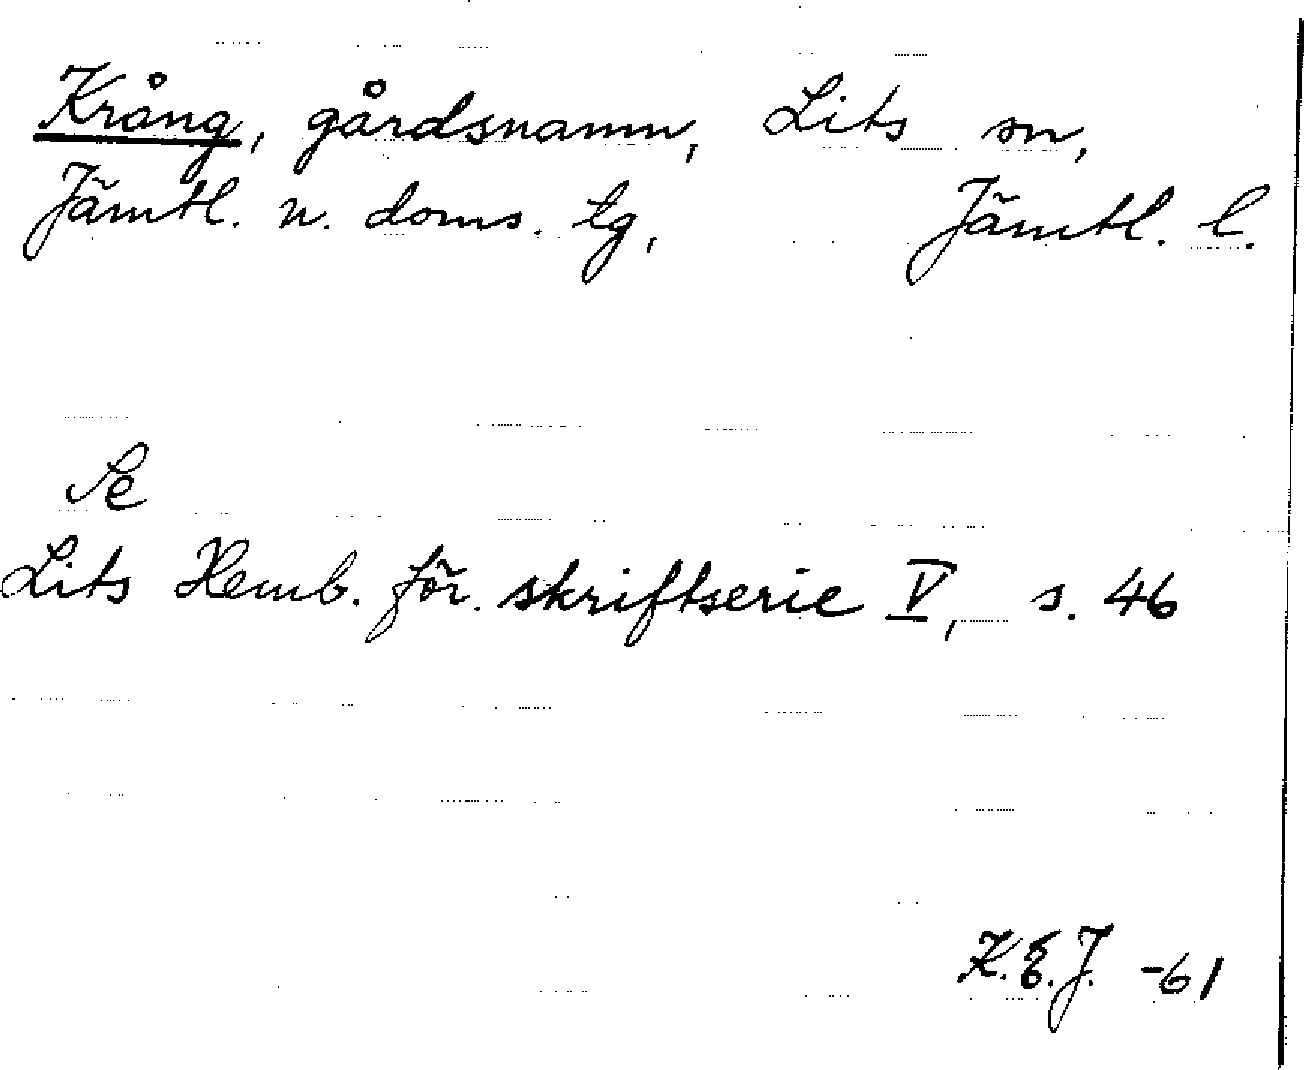 Krång, gårdsnamn, Lits sn,
Jämtl. n. doms. tg, Jämtl. l.
Se
Lits Hemb. för. skriftserie V, s. 46
K.E.J. -61